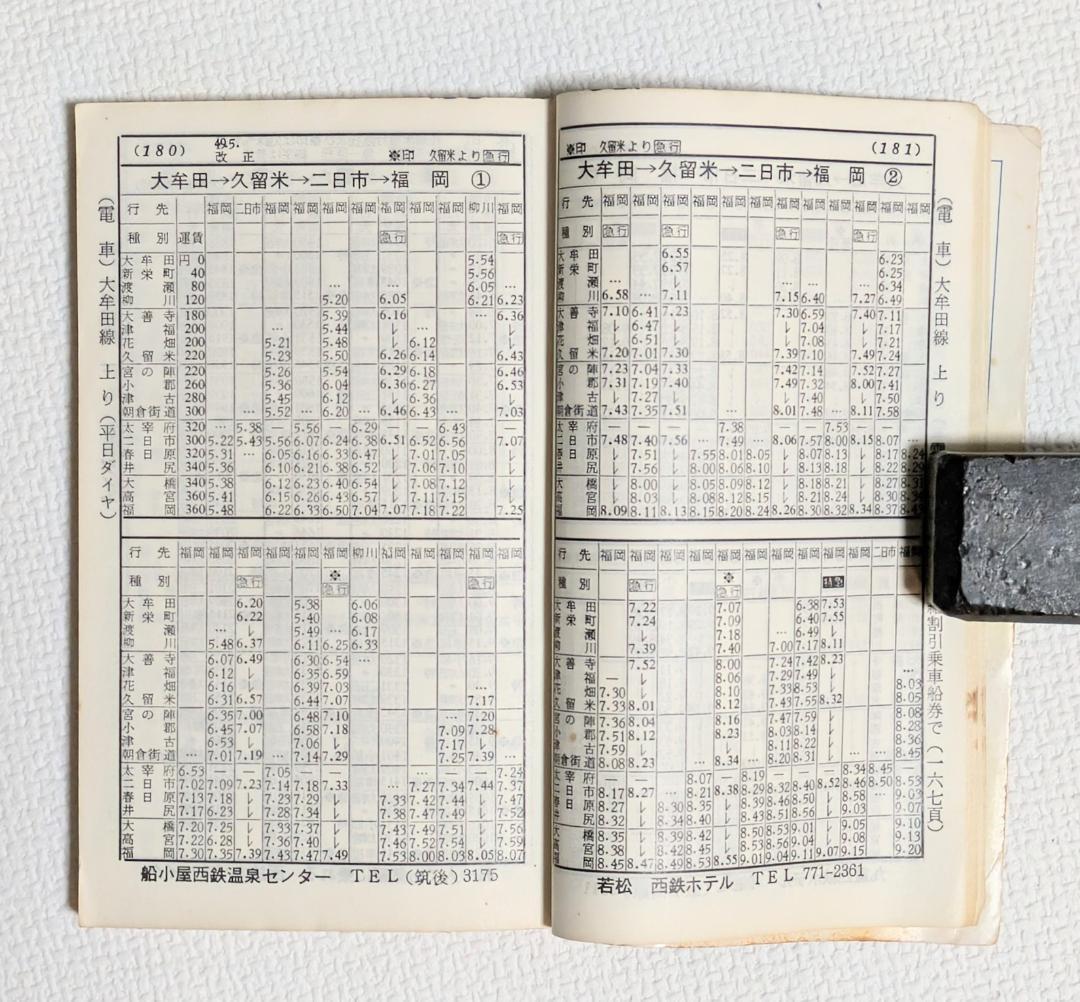 (180) 49.5. 改正 ※印 久留米より急行
大牟田→久留米→二日市→福岡 ①
(電車)大牟田線 上り(平日ダイヤ)
行先 福岡 二日市 福岡 福岡 福岡 福岡 福岡 福岡 福岡 柳川 福岡
種別 運賃 急行 急行
大牟田 円0 5.54
新栄町 40 5.56
渡瀬 80 … … 6.05 …
柳川 120 5.20 6.05 6.21 6.23
大善寺 180 5.39 6.16 … 6.36
津福 200 … 5.44 レ … レ
花畑 200 5.21 5.48 レ 6.12 レ
久留米 220 5.23 5.50 6.26 6.14 6.43
宮の陣 220 5.26 5.54 6.29 6.18 6.46
小郡 260 5.36 6.04 6.36 6.27 6.53
津古 280 5.45 6.12 レ 6.36 レ
朝倉街道 300 … 5.52 … 6.20 … 6.46 6.43 … 7.03
太宰府 320 … 5.38 — 5.56 — 6.29 — — 6.43 —
二日市 300 5.22 5.43 5.56 6.07 6.24 6.38 6.51 6.52 6.56 7.07
春日原 320 5.31 … 6.05 6.16 6.33 6.47 レ 7.01 7.05 レ
井尻 340 5.36 6.10 6.21 6.38 6.52 レ 7.06 7.10 レ
大橋 340 5.38 6.12 6.23 6.40 6.54 レ 7.08 7.12 レ
高宮 360 5.41 6.15 6.26 6.43 6.57 レ 7.11 7.15 レ
福岡 360 5.48 6.22 6.33 6.50 7.04 7.07 7.18 7.22 7.25
行先 福岡 福岡 福岡 福岡 福岡 福岡 柳川 福岡 福岡 福岡 福岡 福岡
種別 急行 ※急行 急行
大牟田 6.20 5.38 6.06
新栄町 6.22 5.40 6.08
渡瀬 … レ 5.49 … 6.17
柳川 5.48 6.37 6.11 6.25 6.33
大善寺 6.07 6.49 6.30 6.54 …
津福 6.12 レ 6.35 6.59
花畑 6.16 レ 6.39 7.03 …
久留米 6.31 6.57 6.44 7.07 7.17
宮の陣 6.35 7.00 6.48 7.10 … 7.20
小郡 6.45 7.07 6.58 7.18 7.09 7.28
津古 6.53 レ 7.06 レ 7.17 レ
朝倉街道 … 7.01 7.19 … 7.14 7.29 7.25 7.39 …
太宰府 6.53 — — 7.05 — — … — — 7.24
二日市 7.02 7.09 7.23 7.14 7.18 7.33 … 7.27 7.34 7.44 7.37
春日原 7.13 7.18 レ 7.23 7.29 レ 7.33 7.42 7.44 レ 7.47
井尻 7.17 6.23 レ 7.28 7.34 レ 7.38 7.47 7.49 レ 7.52
大橋 7.20 7.25 レ 7.33 7.37 レ 7.43 7.49 7.51 レ 7.56
高宮 7.22 6.28 レ 7.36 7.40 レ 7.46 7.52 7.54 レ 7.59
福岡 7.30 7.35 7.39 7.43 7.47 7.49 7.53 8.00 8.03 8.05 8.07
船小屋西鉄温泉センター TEL(筑後)3175
※印 久留米より急行 (181)
大牟田→久留米→二日市→福岡 ②
(電車)大牟田線 上り
割引乗車船券で(一六七頁)
行先 福岡 福岡 福岡 福岡 福岡 福岡 福岡 福岡 福岡 福岡 福岡 福岡
種別 急行 急行 急行 急行
大牟田 6.55 6.23
新栄町 6.57 6.25
渡瀬 … レ … … … 6.34
柳川 6.58 … 7.11 7.15 6.40 7.27 6.49
大善寺 7.10 6.41 7.23 7.30 6.59 7.40 7.11
津福 レ 6.47 レ レ 7.04 レ 7.17
花畑 レ 6.51 レ レ 7.08 レ 7.21
久留米 7.20 7.01 7.30 7.39 7.10 7.49 7.24
宮の陣 7.23 7.04 7.33 7.42 7.14 7.52 7.27
小郡 7.31 7.19 7.40 7.49 7.32 8.00 7.41
津古 レ 7.27 レ レ 7.40 レ 7.50
朝倉街道 7.43 7.35 7.51 … … 8.01 7.48 … 8.11 7.58
太宰府 — — — 7.38 — — 7.53 — —
二日市 7.48 7.40 7.56 … 7.49 … 8.06 7.57 8.00 8.15 8.07 …
春日原 レ 7.51 レ 7.55 8.01 8.05 レ 8.07 8.13 レ 8.17 8.24
井尻 レ 7.56 レ 8.00 8.06 8.10 レ 8.13 8.18 レ 8.22 8.29
大橋 レ 8.00 レ 8.05 8.09 8.12 レ 8.18 8.21 レ 8.27
高宮 レ 8.03 レ 8.08 8.12 8.15 レ 8.21 8.24 レ 8.30
福岡 8.09 8.11 8.13 8.15 8.20 8.24 8.26 8.30 8.32 8.34 8.37
行先 福岡 福岡 福岡 福岡 福岡 福岡 福岡 福岡 福岡 二日市 福岡
種別 急行 ※急行 特急
大牟田 7.22 7.07 6.38 7.53
新栄町 7.24 7.09 6.40 7.55
渡瀬 レ 7.18 … 6.49 レ
柳川 7.39 7.40 7.00 7.17 8.11
大善寺 7.52 8.00 7.24 7.42 8.23
津福 — レ 8.06 7.29 7.49 レ …
花畑 7.30 レ 8.10 7.33 8.53 レ 8.03
久留米 7.33 8.01 8.12 7.43 7.55 8.32 8.05
宮の陣 7.36 8.04 8.16 7.47 7.59 レ 8.08
小郡 7.51 8.12 8.23 8.03 8.14 レ 8.28
津古 7.59 レ レ 8.11 8.22 レ 8.36
朝倉街道 8.08 8.23 … 8.34 … 8.20 8.31 レ … … 8.45
太宰府 — — 8.07 — 8.19 — — — 8.34 8.45 —
二日市 8.17 8.27 … 8.21 8.38 8.29 8.32 8.40 8.52 8.46 8.50 8.53
春日原 8.27 レ 8.30 8.35 レ 8.39 8.46 8.50 レ 8.58 … 9.03
井尻 8.32 レ 8.34 8.40 レ 8.43 8.51 8.56 レ 9.03 9.07
大橋 8.35 レ 8.39 8.42 レ 8.50 8.53 9.01 レ 9.05 9.10
高宮 8.38 レ 8.42 8.45 レ 8.53 8.56 9.04 レ 9.08 9.13
福岡 8.45 8.47 8.49 8.53 8.55 9.01 9.04 9.11 9.07 9.15 9.20
若松 西鉄ホテル TEL 771-2361